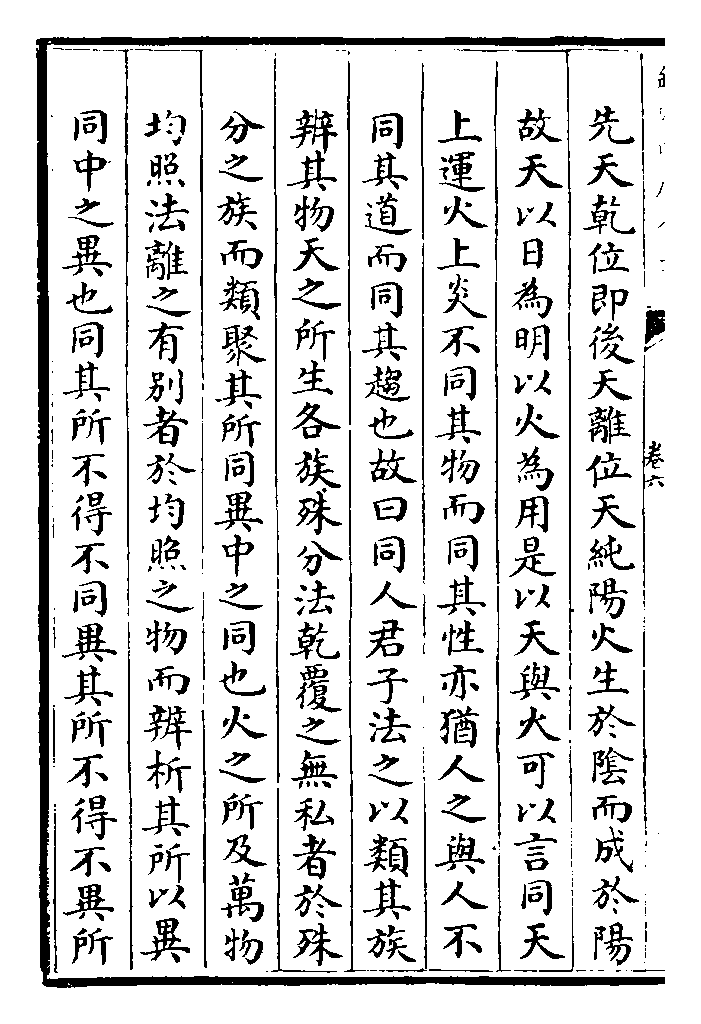 卷六
先天乾位即後天離位天純陽火生於陰而成於陽
故天以日為明以火為用是以天與火可以言同天
上運火上炎不同其物而同其性亦猶人之與人不
同其道而同其趨也故曰同人君子法之以類其族
辨其物天之所生各族殊分法乾覆之無私者於殊
分之族而類聚其所同異中之同也火之所及萬物
均照法離之有别者於均照之物而辨析其所以異
同中之異也同其所不得不同異其所不得不異所